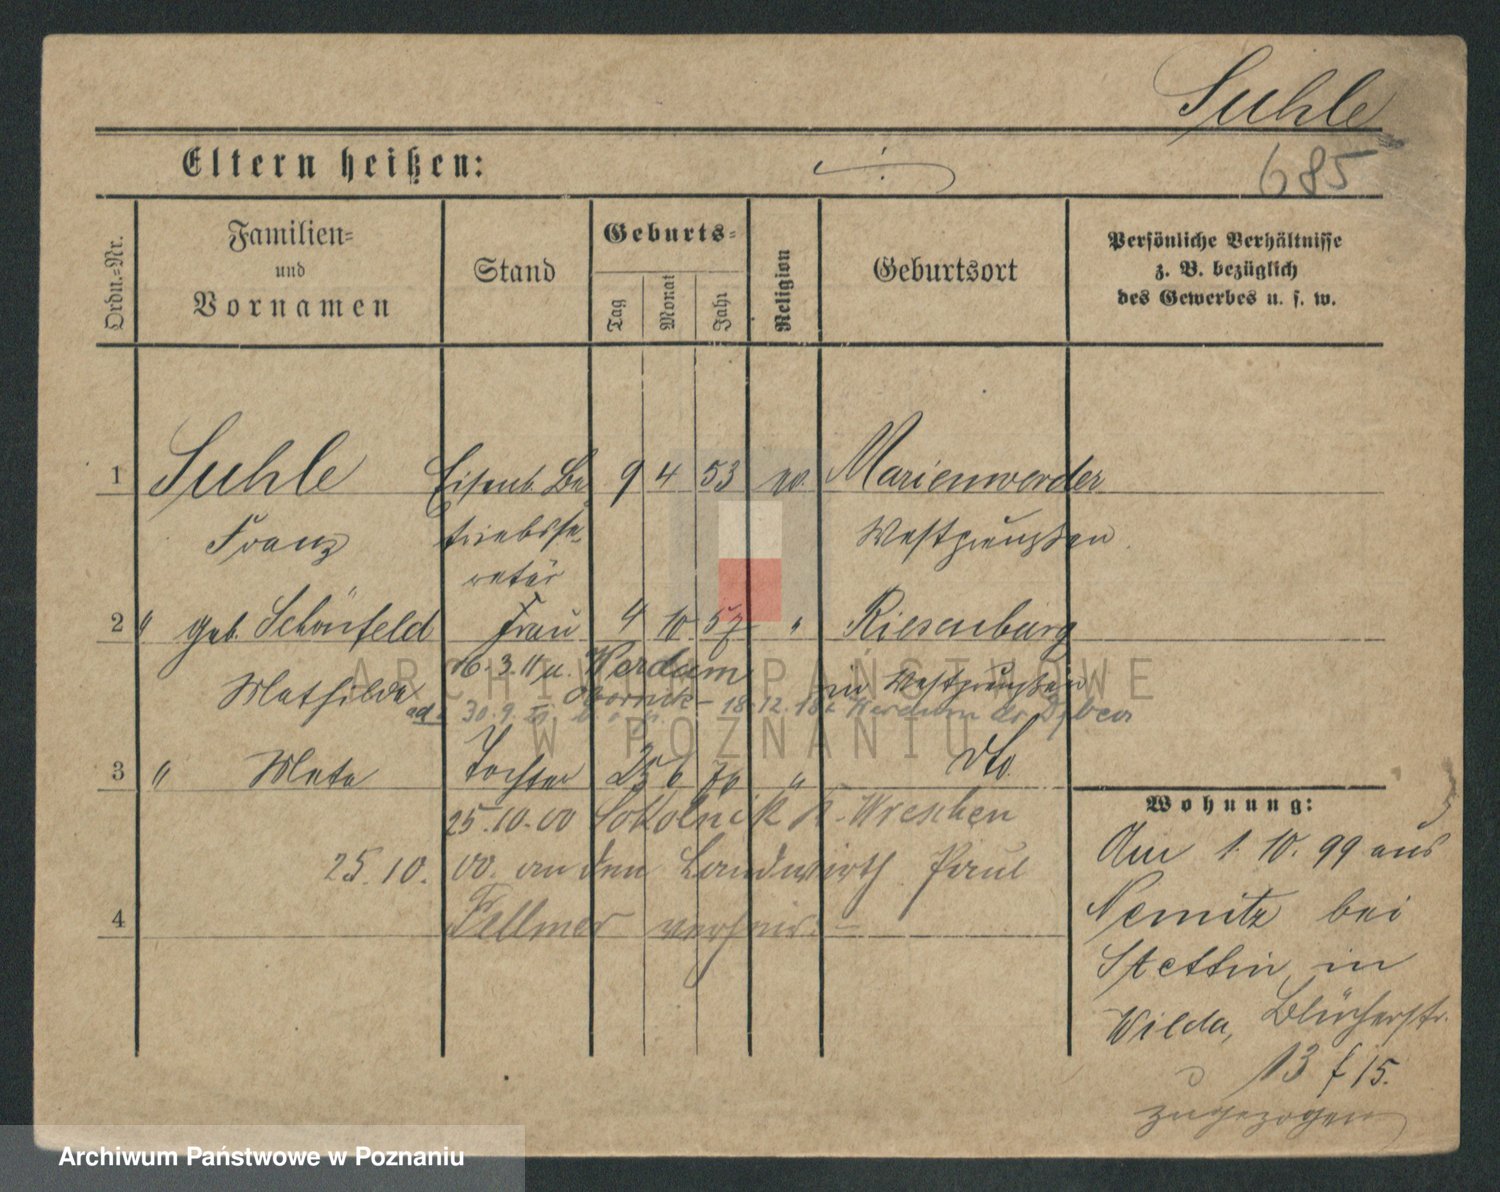 Suhle
Eltern heißen:
685
Ordn.-Nr.
Familien-
und
Vornamen
Stand
Geburts-
Tag
Monat
Jahr
Religion
Geburtsort
Persönliche Verhältnisse
z. B. bezüglich
des Gewerbes u. s. w.
1 Suhle Eisenb. Be 9 4 53 ev. Marienwerder
Franz triebsse- Westpreußen
retär
2 " geb. Schönfeld Frau 4 10 57 " Riesenburg
16.3. u. Werdum
Mathilde Obornik in Westpreußen
30.9. 18.12.
3 " Meta Tochter 25 6 70 " dto.
25.10.00 Sokolnik Kr. Wreschen
25.10.00. an den Landwirth Paul
4 Fellmer verheir.
Wohnung:
Am 1. 10. 99 aus
Nemitz bei
Stettin in
Wilda, Blücherstr.
13 f 15.
zugezogen
ARCHIWUM PAŃSTWOWE
W POZNANIU
Archiwum Państwowe w Poznaniu